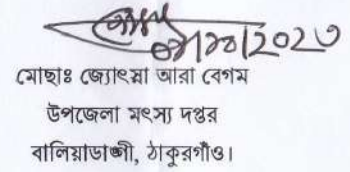 ২০২৩
মোছাঃ জ্যোৎস্না আরা বেগম
উপজেলা মৎস্য দপ্তর
বালিয়াডাঙ্গী, ঠাকুরগাঁও।